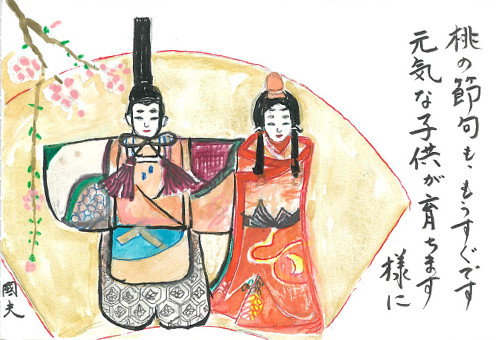 桃の節句も、もうすぐです
元気な子供が育ちます
様に
國夫